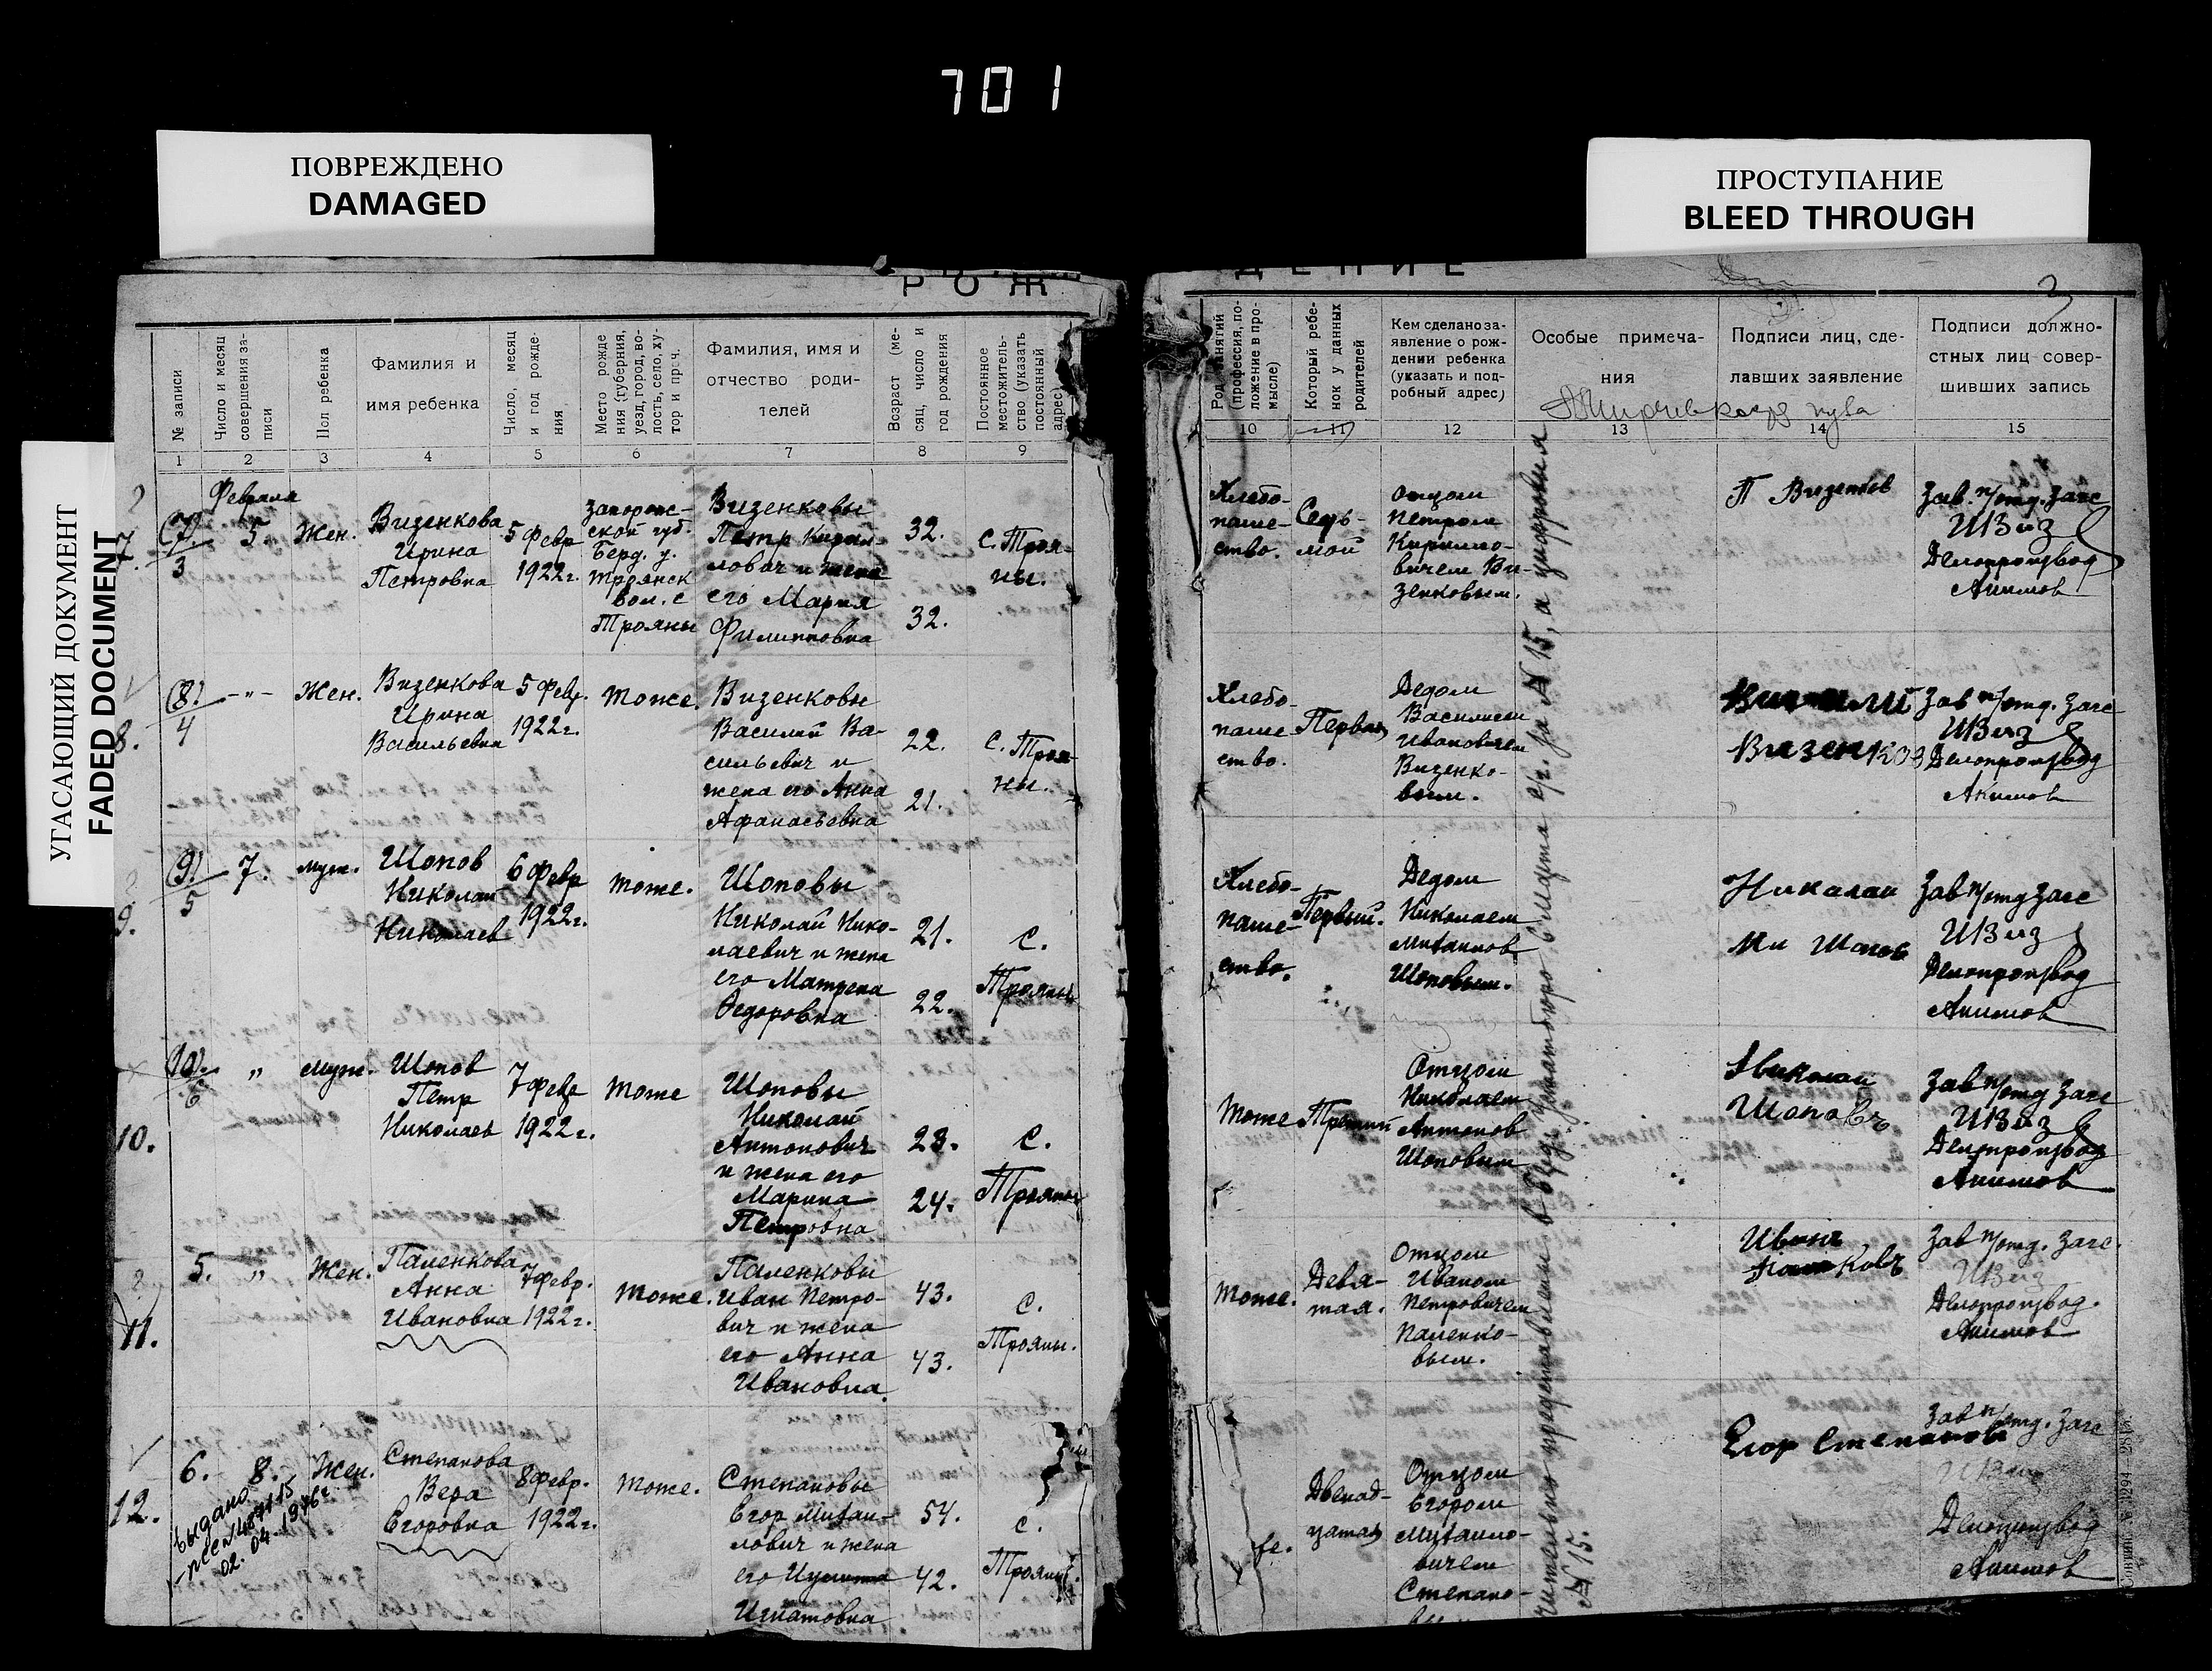 701
ПОВРЕЖДЕНО
DAMAGED
ПРОСТУПАНИЕ
BLEED THROUGH
УГАСАЮЩИЙ ДОКУМЕНТ
FADED DOCUMENT
РОЖ
ДЕНИЕ
3
№ записи
Число и месяц совершения записи
Пол ребенка
Фамилия и
имя ребенка
Число, месяц и год рождения
Место рождения (губерния, уезд, город, волость, село, хутор и проч.
Фамилия, имя и
отчество роди-
телей
Возраст (месяц, число и год рождения
Постоянное местожительство (указать постоянный адрес)
Род занятий (профессия, положение в промысле)
Который ребенок у данных родителей
Кем сделано за-
явление о рож-
дении ребенка
(указать и под-
робный адрес)
Особые примеча-
ния
Подписи лиц, сде-
лавших заявление
Подписи должно-
стных лиц совер-
шивших запись
1 2 3 4 5 6 7 8 9
10 11 12 13 14 15
7.
(7)
3
Февраля
5.
Жен.
Визенкова
Ирина
Петровна
5 Февр
1922г.
Запорож-
ской губ.
Берд. у.
Троянск
вол. с
Трояны
Визенковы
Петр Кирил-
лович и жена
его Мария
Филипповна
32.
32.
с. Троя-
ны.
Хлебо-
паше-
ство.
Седь-
мой
Отцом
Петром
Кирилло-
вичем Ви-
зенковым.
Зав. п/отд. Загс
Делопроизвод
Акимов
8.
(8)
4
-"-
Жен.
Визенкова
Ирина
Васильевна
5 Февр.
1922г.
Тоже.
Визенковы
Василий Ва-
сильевич и
жена его Анна
Афанасьевна
22.
21.
с. Троя-
ны.
Хлебо-
паше-
ство.
Первая
Дедом
Василием
Ивановичем
Визенко-
вым.
Визенков
Зав п/отд. Загс
Делопроизвод
Акимов
9.
(9)
5
7.
муж.
Шопов
Николай
Николаев
6 Февр
1922г.
Тоже.
Шоповы
Николай Нико-
лаевич и жена
его Матрена
Федоровна
21.
22.
с.
Трояны
Хлебо-
паше-
ство.
Первый.
Дедом
Николаем
Михайлов
Шоповым.
Николай
Ми Шопов
Зав п/отд Загс
Делопроизвод
Акимов
10.
(10)
6
"
Муж.
Шопов
Петр
Николаев
7 Февр
1922г.
Тоже
Шоповы
Николай
Антонович
и жена его
Марина
Петровна
23.
24.
с.
Трояны
Тоже
Третий
Отцом
Николаем
Антонов
Шоповым
Николай
Шоповъ
Зав п/отд Загс
Делопроизвод
Акимов
11.
5.
"
Жен.
Паленкова
Анна
Ивановна
7 Февр.
1922г.
Тоже.
Паленковы
Иван Петро-
вич и жена
его Анна
Ивановна
43.
43.
с.
Трояны.
Тоже.
Девя-
тая.
Отцом
Иваном
Петровичем
Паленко-
вым.
Иванъ
Зав п/отд. Загс.
Делопроизвод.
Акимов
12.
6.
8.
Жен.
Степанова
Вера
Егоровна
8 Февр.
1922г.
Тоже.
Степановы
Егор Михай-
лович и жена
его
Игнатовна
54.
42.
с.
Трояны.
Двенад-
цатая
Отцом
Егором
Михайло-
вичем
Степано-
Егор Степанов
Зав п/отд. Загс
Делопроизвод
Акимов
Выдано
02. 04. 1976г
№ 15.